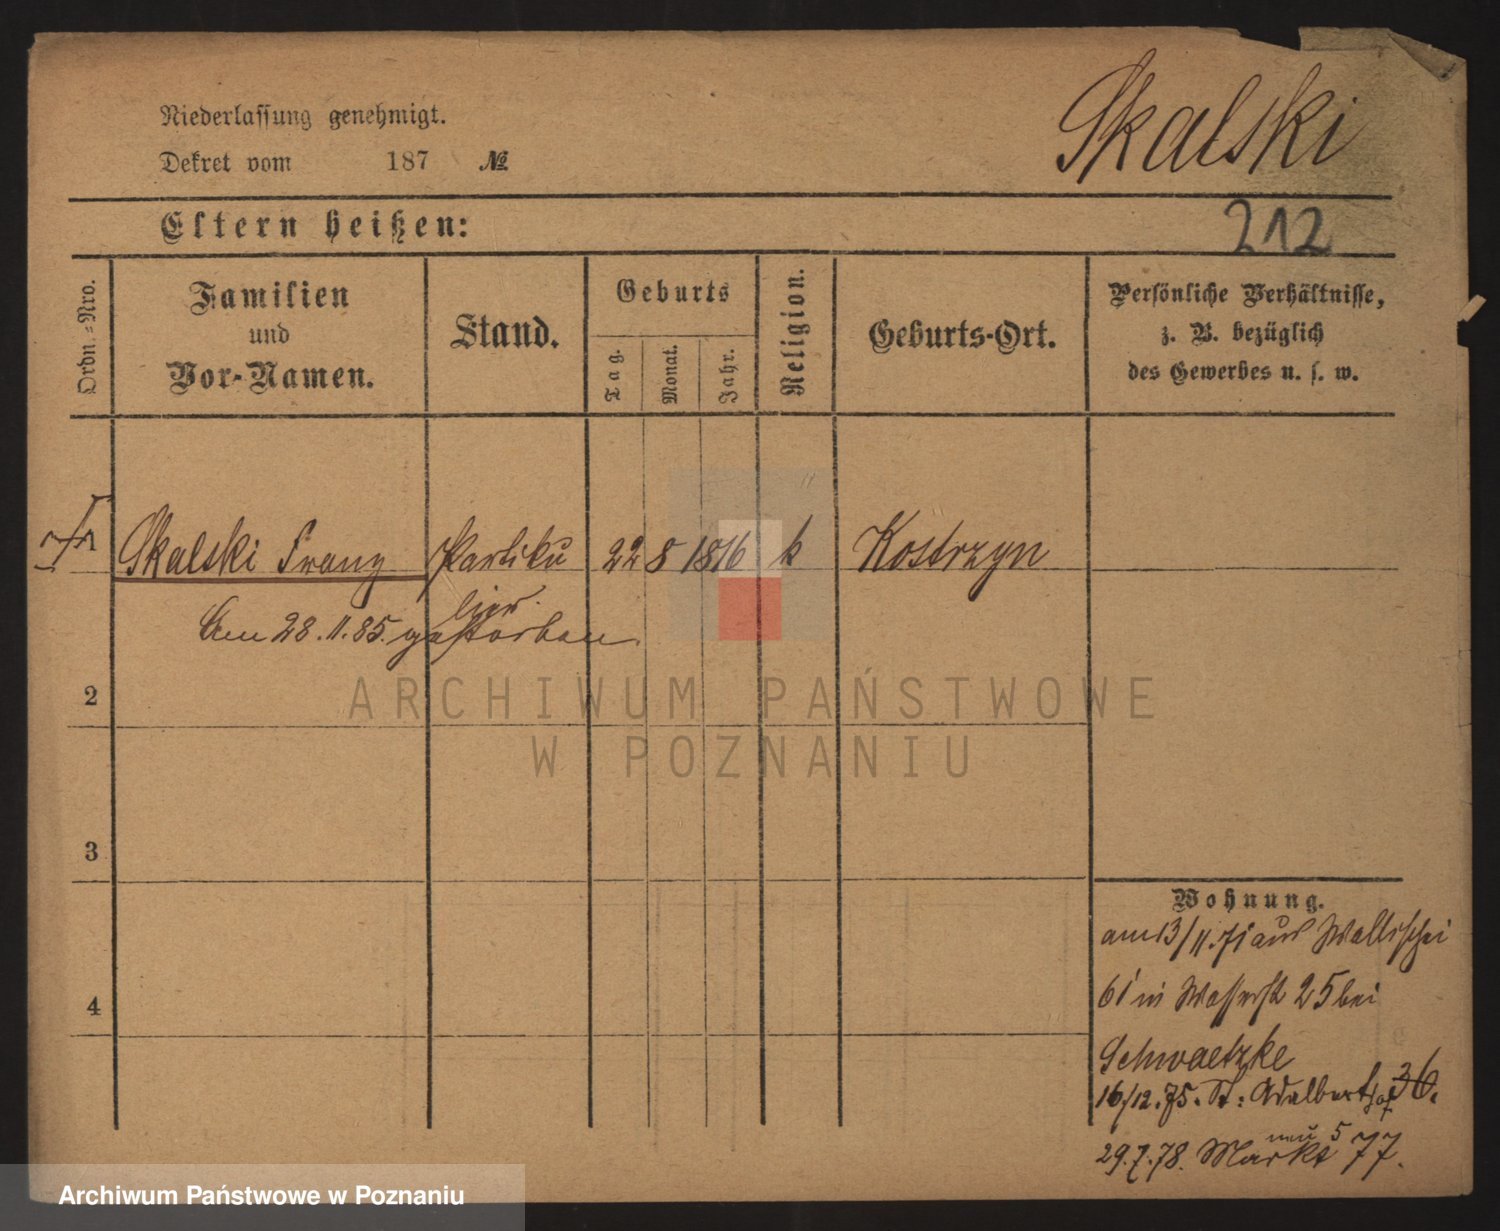 Niederlassung genehmigt.
Dekret vom 187 №
Skalski
Eltern heißen:
212
Ordn.-Nro.
Familien
und
Vor-Namen.
Stand.
Geburts
Tag.
Monat.
Jahr.
Religion.
Geburts-Ort.
Persönliche Verhältnisse,
z. B. bezüglich
des Gewerbes u. s. w.
1 Skalski Franz Partiku 22 8 1816 k Kostrzyn
lier.
Am 28.11.85. gestorben.
2
ARCHIWUM PAŃSTWOWE
W POZNANIU
3
4
Wohnung.
am 13/11.71 aus Wallischei
61 in Wasserst 25 bei
Schwaetzke
16/12.75. St: Adalbert 36.
neu 5
29.7.78. Markt 77.
Archiwum Państwowe w Poznaniu